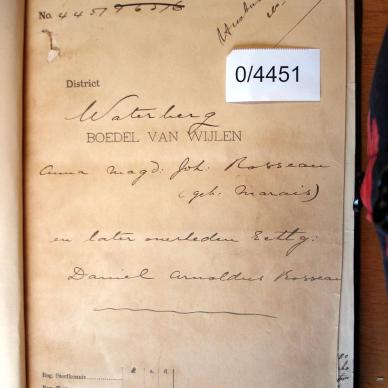 No. 4451 96516
0/4451
District
Waterberg
BOEDEL VAN WIJLEN
Anna Magd: Joh: Rosseau
(geb: Marais)
en later overleden Echtg:
Daniel Arnoldus Rosseau
Reg. Sterfkennis